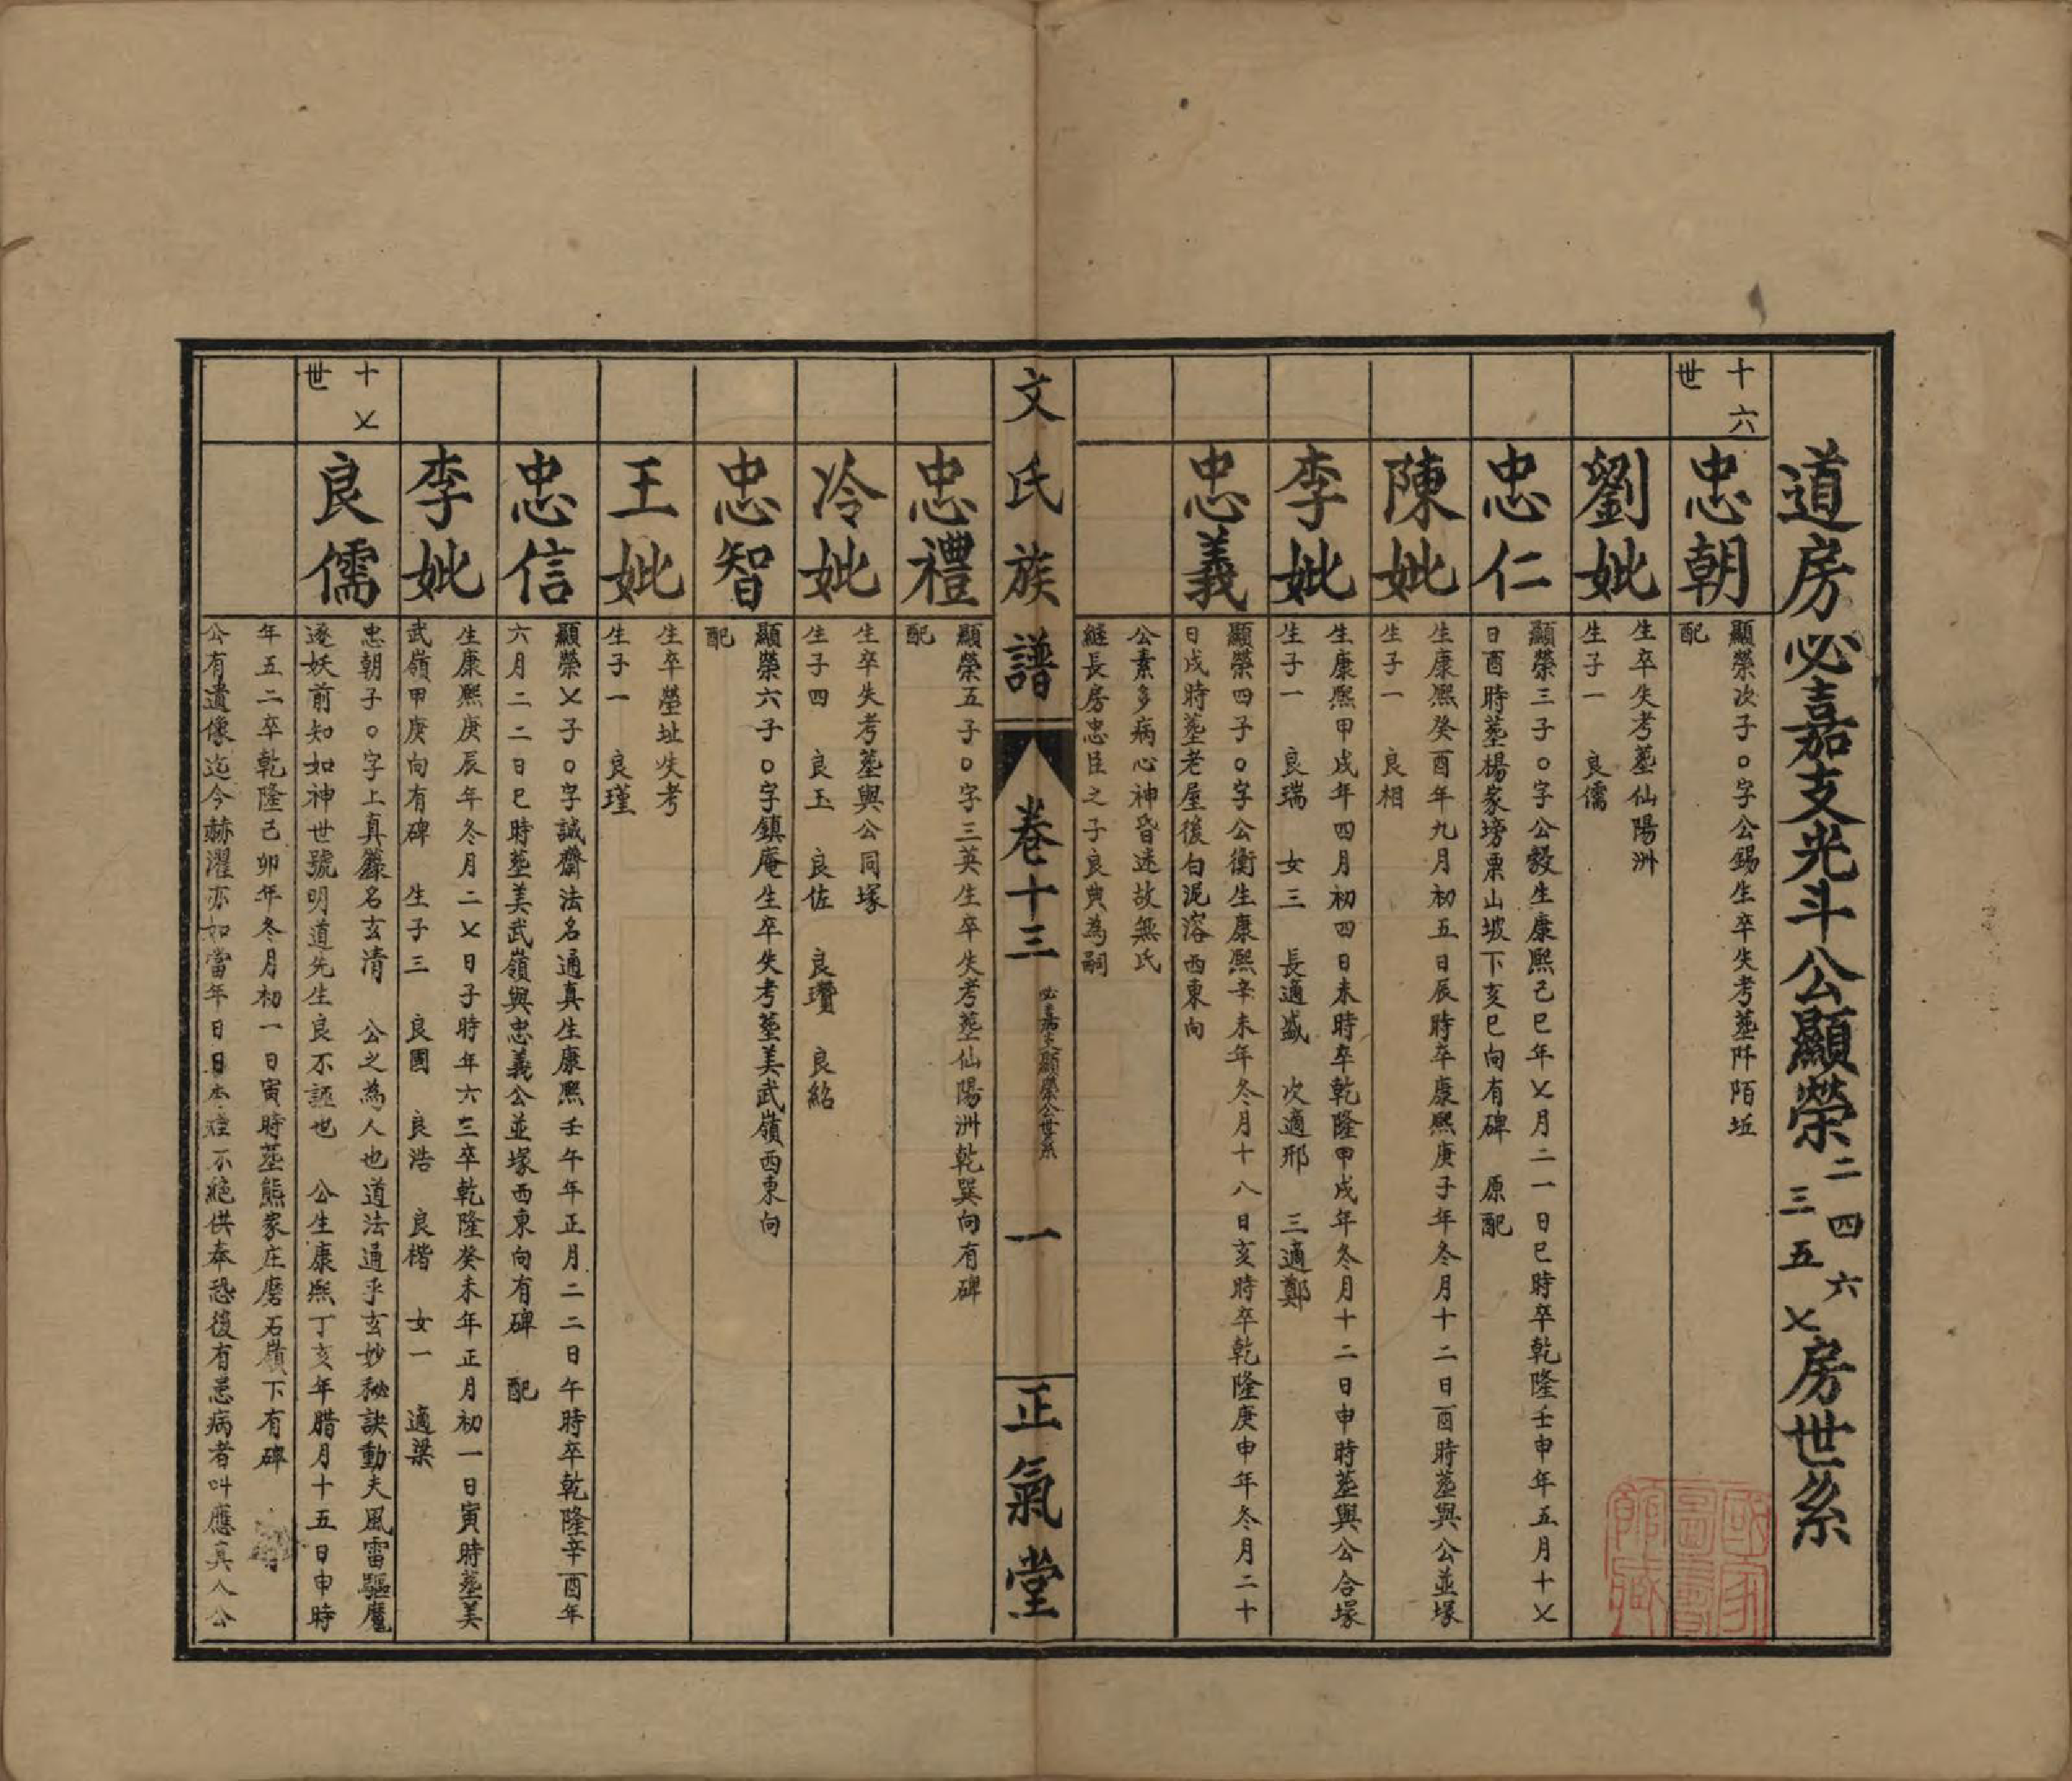 道房必嘉支光斗公顯榮二四六三五七房世系
十六世
忠朝
顯榮次子〇字公錫生卒失考塟阡陌坵
配
劉妣
生卒失考塟仙陽洲
生子一 良儒
忠仁
顯榮三子〇字公毅生康熙己巳年乂月二一日巳時卒乾隆壬申年五月十乂
日酉時塟楊家塝栗山坡下亥巳向有碑 原配
陳妣
生康熙癸酉年九月初五日辰時卒康熙庚子年冬月十二日酉時塟與公並塚
生子一 良相
李妣
生康熙甲戌年四月初四日未時卒乾隆甲戌年冬月十二日申時塟與公合塚
生子一 良瑞 女三 長適盛 次適邢 三適鄭
忠義
顯榮四子〇字公衡生康熙辛未年冬月十八日亥時卒乾隆庚申年冬月二十
日戌時塟老屋後白泥溶西東向
公素多病心神昏迷故無氏
繼長房忠臣之子良典為嗣
文氏族譜
卷十三
必嘉支顯榮公世系
一
正氣堂
忠禮
顯榮五子〇字三英生卒失考塟仙陽洲乾巽向有碑
配
冷妣
生卒失考塟與公同塚
生子四 良玉 良佐 良瓚 良紹
忠智
顯榮六子〇字鎮庵生卒失考塟美武嶺西東向
配
王妣
生卒塋址失考
生子一 良瑾
忠信
顯榮乂子〇字誠齋法名通真生康熙壬午年正月二二日午時卒乾隆辛酉年
六月二二日巳時塟美武嶺與忠義公並塚西東向有碑 配
李妣
生康熙庚辰年冬月二乂日子時年六三卒乾隆癸未年正月初一日寅時塟美
武嶺甲庚向有碑 生子三 良國 良浩 良楷 女一 適梁
十乂世
良儒
忠朝子〇字上真籙名玄清 公之為人也道法通乎玄妙秘訣動夫風雷驅魔
逐妖前知如神世號明道先生良不誣也 公生康熙丁亥年腊月十五日申時
年五二卒乾隆己卯年冬月初一日寅時塟熊家庄磨石嶺下有碑
公有遺像迄今赫濯亦如當年日日本壇不絕供奉恐後有患病者叫應真人公
國家圖書館藏